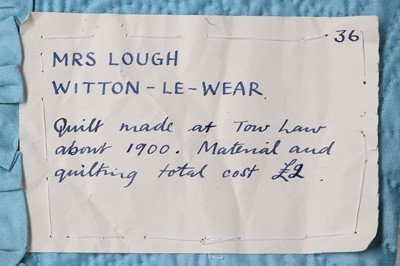 36
MRS LOUGH
WITTON-LE-WEAR.
Quilt made at Tow Law
about 1900. Material and
quilting total cost £2.